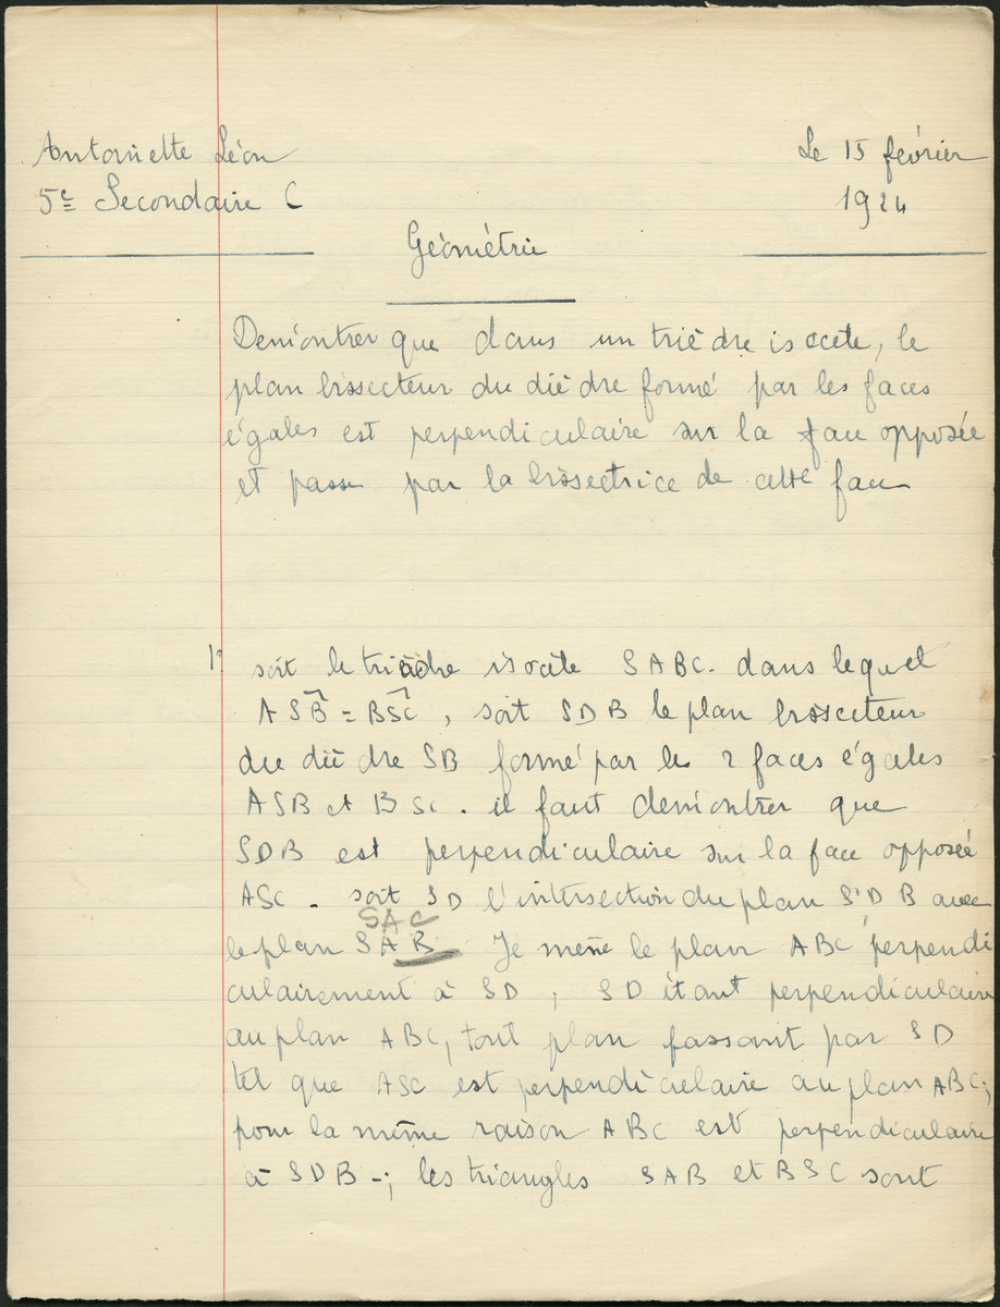 Antoinette Léon
Le 15 février
5e Secondaire C
1924
Géométrie
Demontrer que dans un trièdre isocèle, le
plan bissecteur du dièdre formé par les faces
égales est perpendiculaire sur la face opposée
et passe par la bissectrice de cette face
1° soit le trièdre isocèle SABC. dans lequel
ASB = BSC, soit SDB le plan bissecteur
du dièdre SB formé par les 2 faces égales
ASB et BSC. il faut demontrer que
SDB est perpendiculaire sur la face opposée
ASC. soit SD l'intersection du plan SDB avec
SAC
le plan SAB Je mène le plan ABC perpendi
culairement à SD ; SD étant perpendiculaire
au plan ABC, tout plan passant par SD
tel que ASC est perpendiculaire au plan ABC;
pour la même raison ABC est perpendiculaire
à SDB -; les triangles SAB et BSC sont